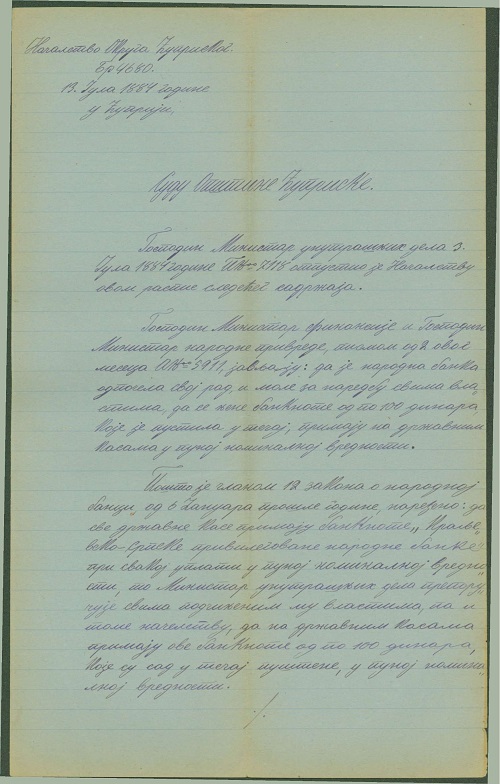 Началство Округа Ћупријског.
Бр 4680.
13. Јула 1884 године
у Ћуприји,
Суду Општине Ћупријске.
Господин Министар унутрашњих дела 3.
Јула 1884 године спустио је Началству
овом распис следећег садржаја.
Господин Министар Финансије и Господин
Министар народне привреде, писмом од 2 овог
месеца јављају: да је народна банка
отпочела свој рад, и моле за наредбу свима вла-
стима, да се њене банкноте од по 100 динара
које је пустила у течај, примају на државним
касама у пуној номиналној вредности.
Пошто је чланом 12 закона о народној
банци, од 6 Јануара прошле године, наређено: да
све државне касе примају банкноте „Краље-
вско-Српске привилеговане народне банке"
при свакој уплати у пуној номиналној вредно-
сти, то Министар унутрашњих дела препору-
чује свима подчињеним му властима, па и
томе начелству, да на државним касама
примају ове банкноте од по 100 динара,
које су сад у течај пуштене, у пуној номина-
лној вредности.
./.